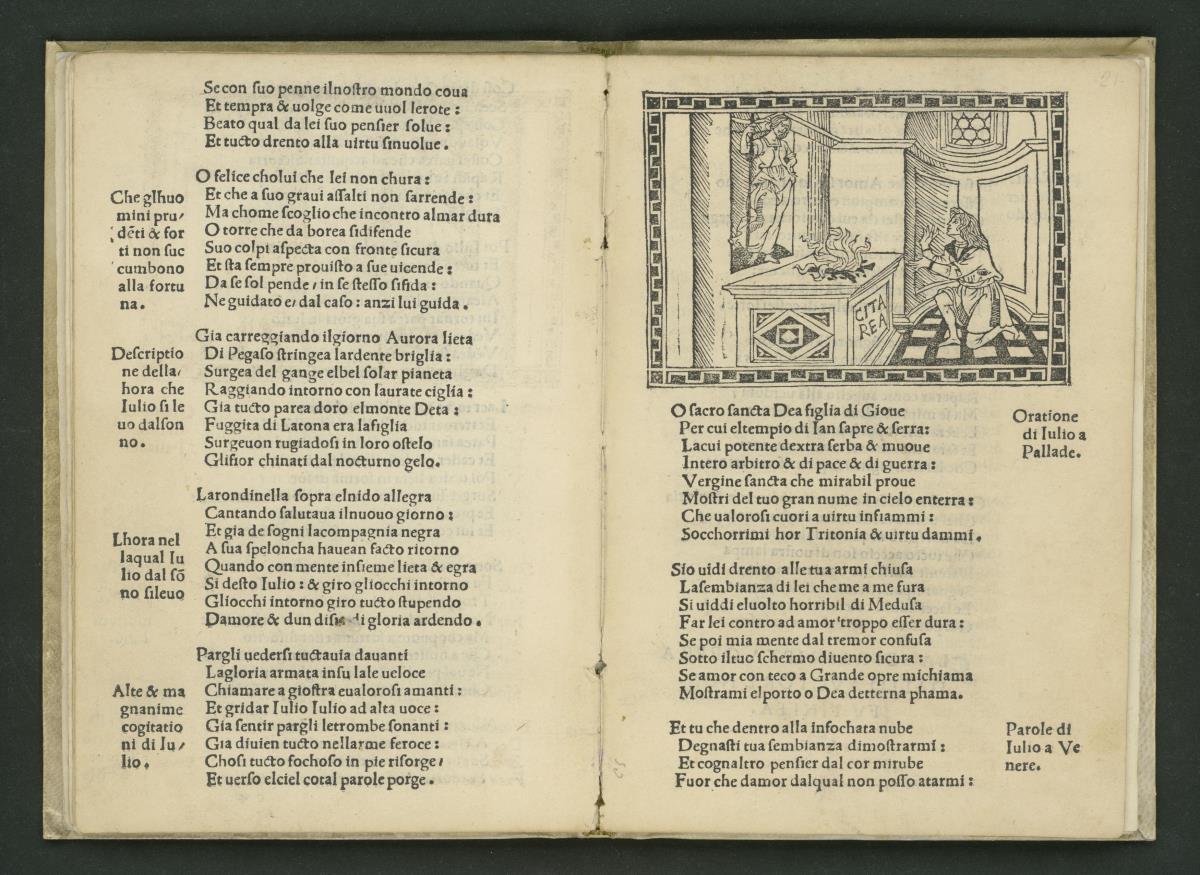 Se con ſuo penne ilnoſtro mondo coua
Et tempra & uolge come uuol lerote :
Beato qual da lei ſuo penſier ſolue :
Et tucto drento alla uirtu ſinuolue .
O felice cholui che lei non chura :
Et che a ſuo graui aſſalti non ſarrende :
Ma chome ſcoglio che incontro almar dura
O torre che da borea ſidifende
Suo colpi aſpecta con fronte ſicura
Et ſta ſempre prouiſto a ſue uicende :
Da ſe ſol pende / in ſe ſteſſo ſifida :
Ne guidato e / dal caſo : anzi lui guida .
Che glhuo
mini pru /
dēti & for
ti non ſuc
cumbono
alla fortu
na .
Gia carreggiando ilgiorno Aurora lieta
Di Pegaſo ſtringea lardente briglia :
Surgea del gange elbel ſolar pianeta
Raggiando intorno con laurate ciglia :
Gia tucto parea doro elmonte Oeta :
Fuggita di Latona era lafiglia
Surgeuon rugiadoſi in loro oſtelo
Glifior chinati dal nocturno gelo .
Deſcriptio
ne della /
hora che
Iulio ſi le
uo dalſon
no .
Larondinella ſopra elnido allegra
Cantando ſalutaua ilnuouo giorno :
Et gia de ſogni lacompagnia negra
A ſua ſpeloncha hauean facto ritorno
Quando con mente inſieme lieta & egra
Si deſto Iulio : & giro gliocchi intorno
Gliocchi intorno giro tucto ſtupendo
Damore & dun di gloria ardendo .
Lhora nel
laqual Iu
lio dal ſō
no ſileuo
Pargli uederſi tuctauia dauanti
Lagloria armata inſu lale ueloce
Chiamare a gioſtra eualoroſi amanti :
Et gridar Iulio Iulio ad alta uoce :
Gia ſentir pargli letrombe ſonanti :
Gia diuien tucto nellarme feroce :
Choſi tucto fochoſo in pie riſorge /
Et uerſo elciel cotal parole porge .
Alte & ma
gnanime
cogitatio
ni di Iu /
lio .
21
CITA
REA
O ſacro ſancta Dea figlia di Gioue
Per cui eltempio di Ian ſapre & ſerra :
Lacui potente dextra ſerba & muoue
Intero arbitro & di pace & di guerra :
Vergine ſancta che mirabil proue
Moſtri del tuo gran nume in cielo enterra :
Che ualoroſi cuori a uirtu infiammi :
Socchorrimi hor Tritonia & uirtu dammi .
Oratione
di Iulio a
Pallade .
Sio uidi drento alle tua armi chiuſa
Laſembianza di lei che me a me fura
Si uiddi eluolto horribil di Meduſa
Far lei contro ad amor troppo eſſer dura :
Se poi mia mente dal tremor confuſa
Sotto iltuo ſchermo diuento ſicura :
Se amor con teco a Grande opre michiama
Moſtrami elporto o Dea detterna phama .
Et tu che dentro alla infochata nube
Degnaſti tua ſembianza dimoſtrarmi :
Et cognaltro penſier dal cor mirube
Fuor che damor dalqual non poſſo atarmi :
Parole di
Iulio a Ve
nere .